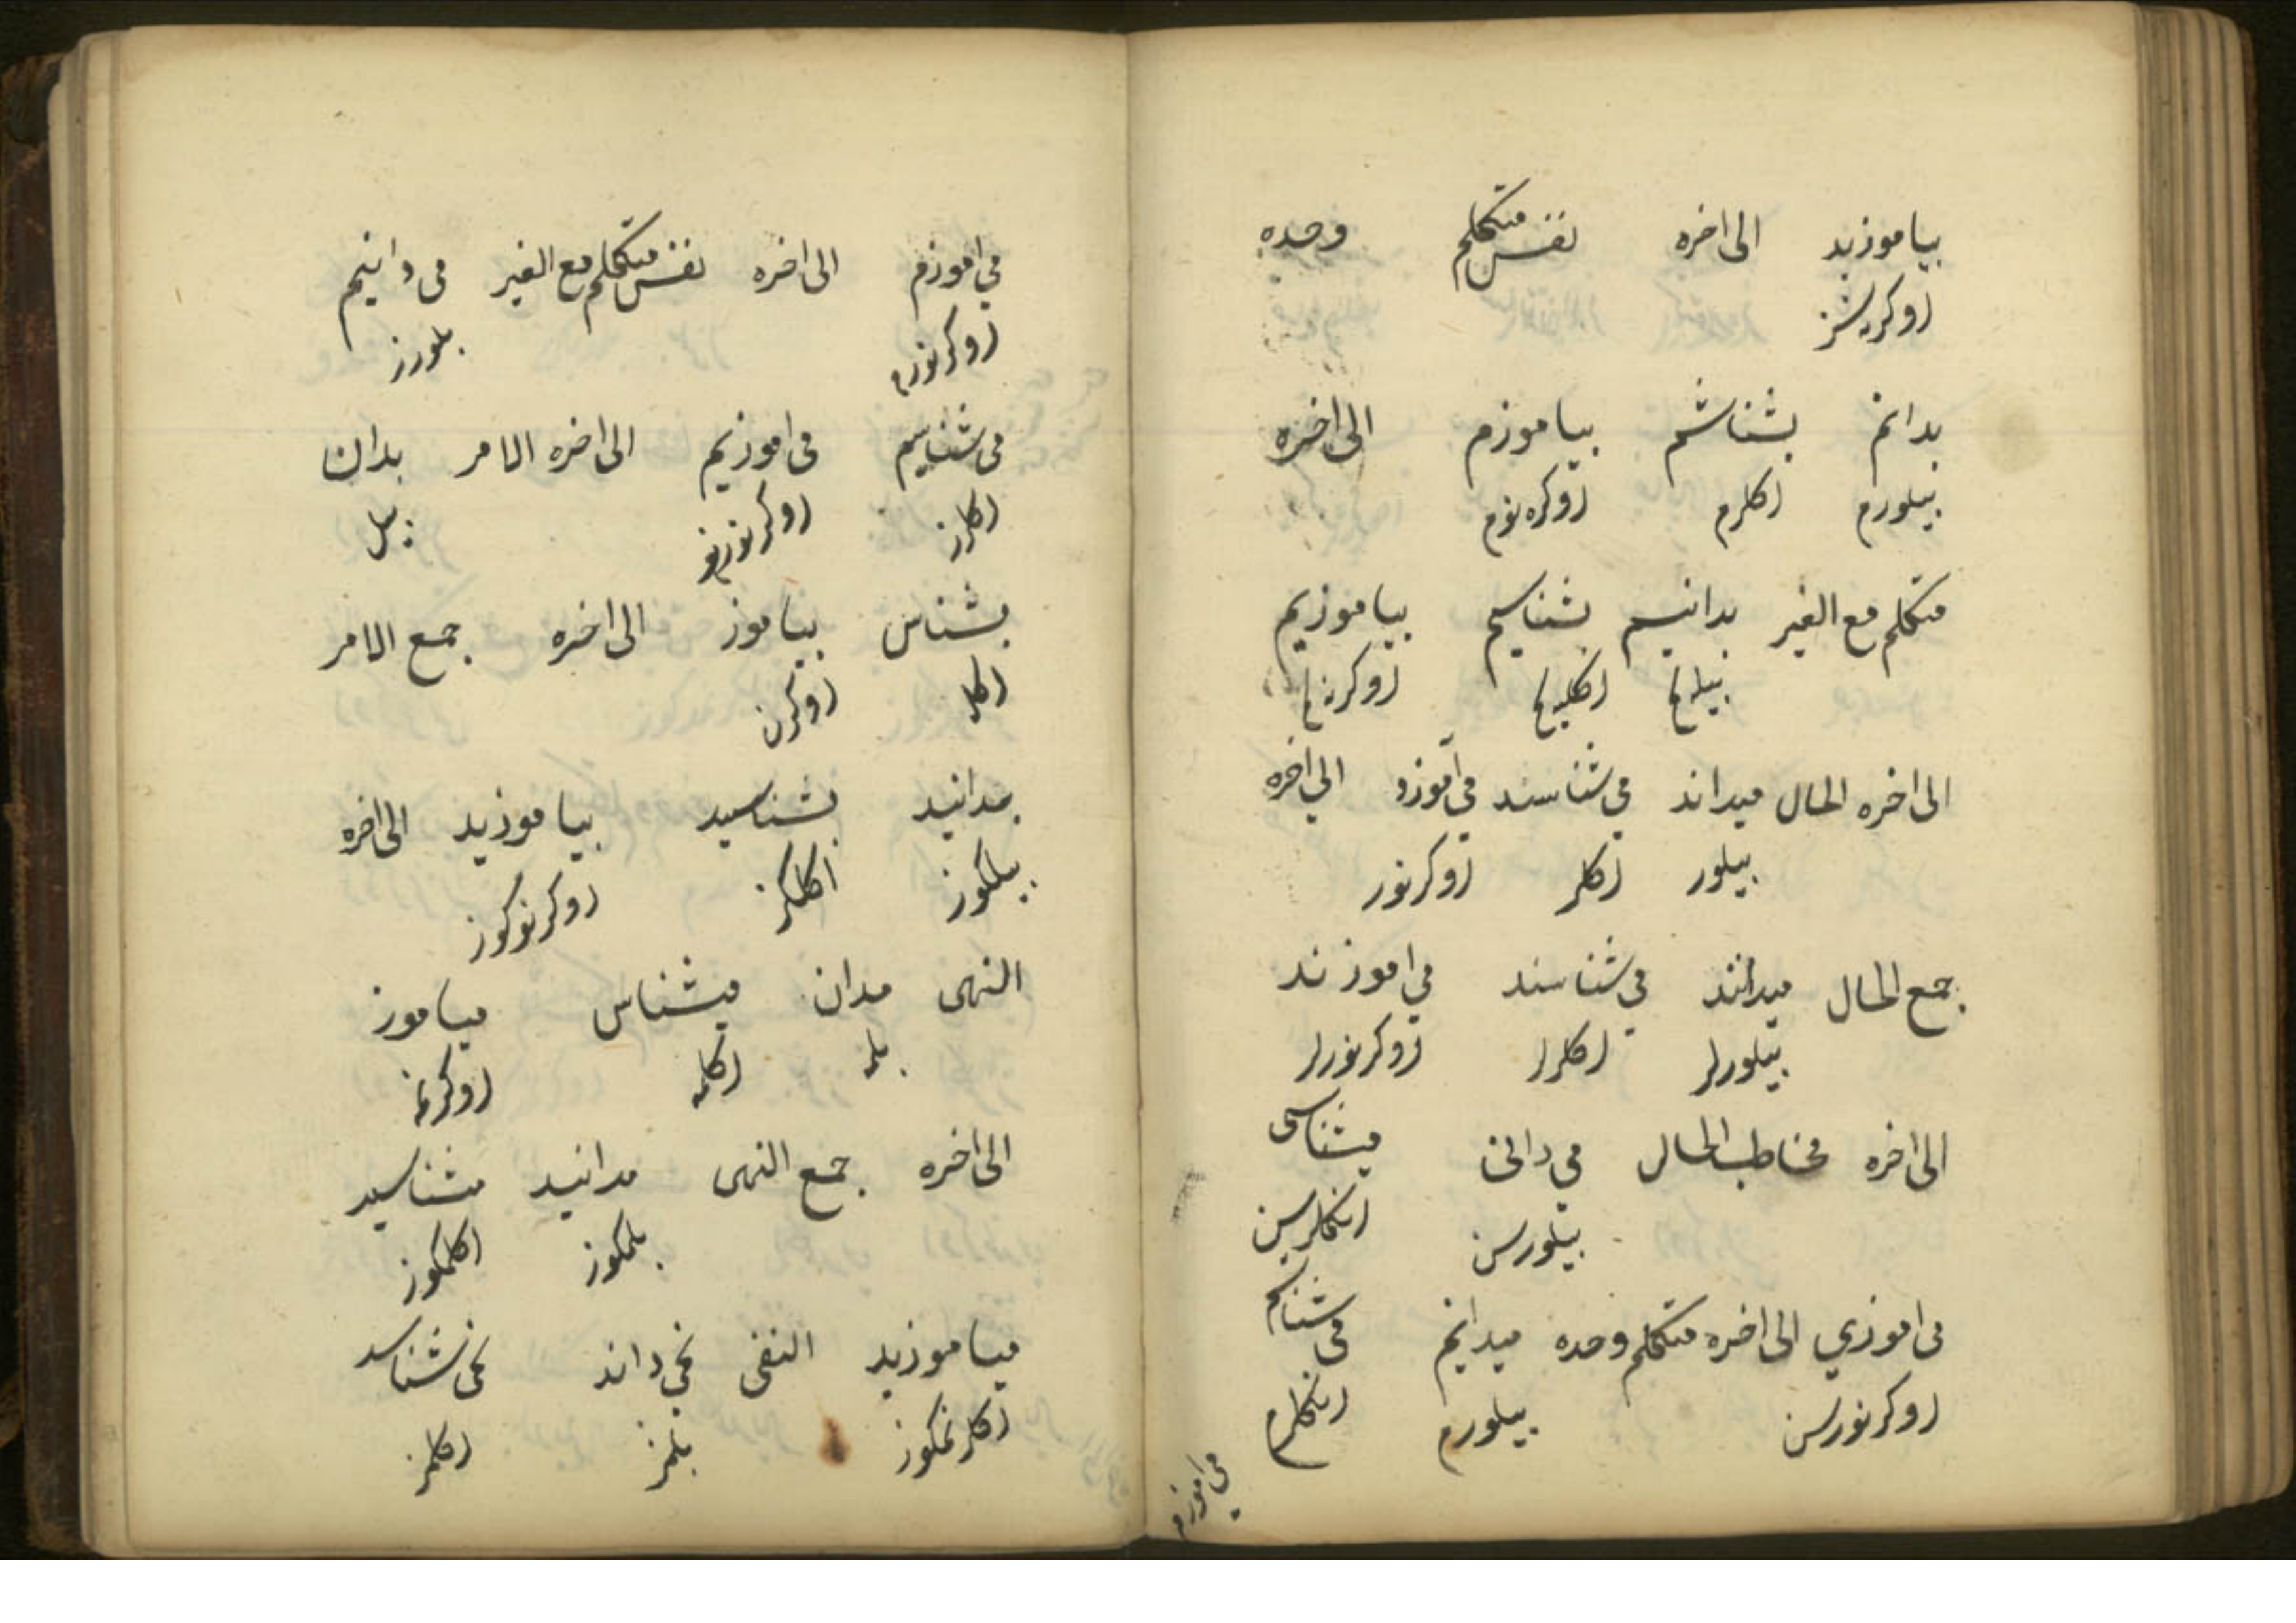 بیاموزید الی اخره نفس متکلم وحده
اوکریشز
بدانم بشناشم بیاموزم الی اخره
بیلورم اکلرم اوکره نورم
متکلم مع الغیر بدانیم بشناسیم بیاموزیم
الی اخره الحال میداند می شناسند می آموزد الی اخره
بیلور اکلر اوکرنور
جمع الحال میدانند می شناسند می اموزند
بیلورلر اکلرلر اوکرنورلر
الی اخره مخاطب الحال می دانی میشناسی
بیلورسن انکلرسن
می اموزي الی اخره متکلم وحده میدانم می شناسم
اوکرنورسن بیلورم انکلرم
می اموزم
می اموزم الی اخره نفس متکلم مع الغیر می دانیم
اوکرنورم بلورز
می شناسیم می اموزیم الی اخره الامر بدان
اکلرز بیل
بشناس بیاموز الی اخره جمع الامر
اکلا اوکرن
بدانید بشناسید بیاموزید الی اخره
بیلکوز اکلکز اوکرنوکوز
النهی مدان میشناس میاموز
بلمه اکلمه اوکرنمه
الی اخره جمع النهی مدانید مشناسید
بلمکوز اکلمکوز
میاموزید النفی نمی داند نمی شناسد
اکلرنمکوز بلمز اکلمز